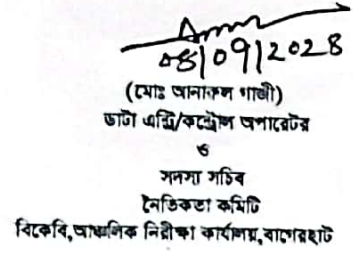 08/09/2028
(মোঃ আনারুল গাজী)
ডাটা এন্ট্রি/কন্ট্রোল অপারেটর
ও
সদস্য সচিব
নৈতিকতা কমিটি
বিকেবি,আঞ্চলিক নিরীক্ষা কার্যালয়,বাগেরহাট